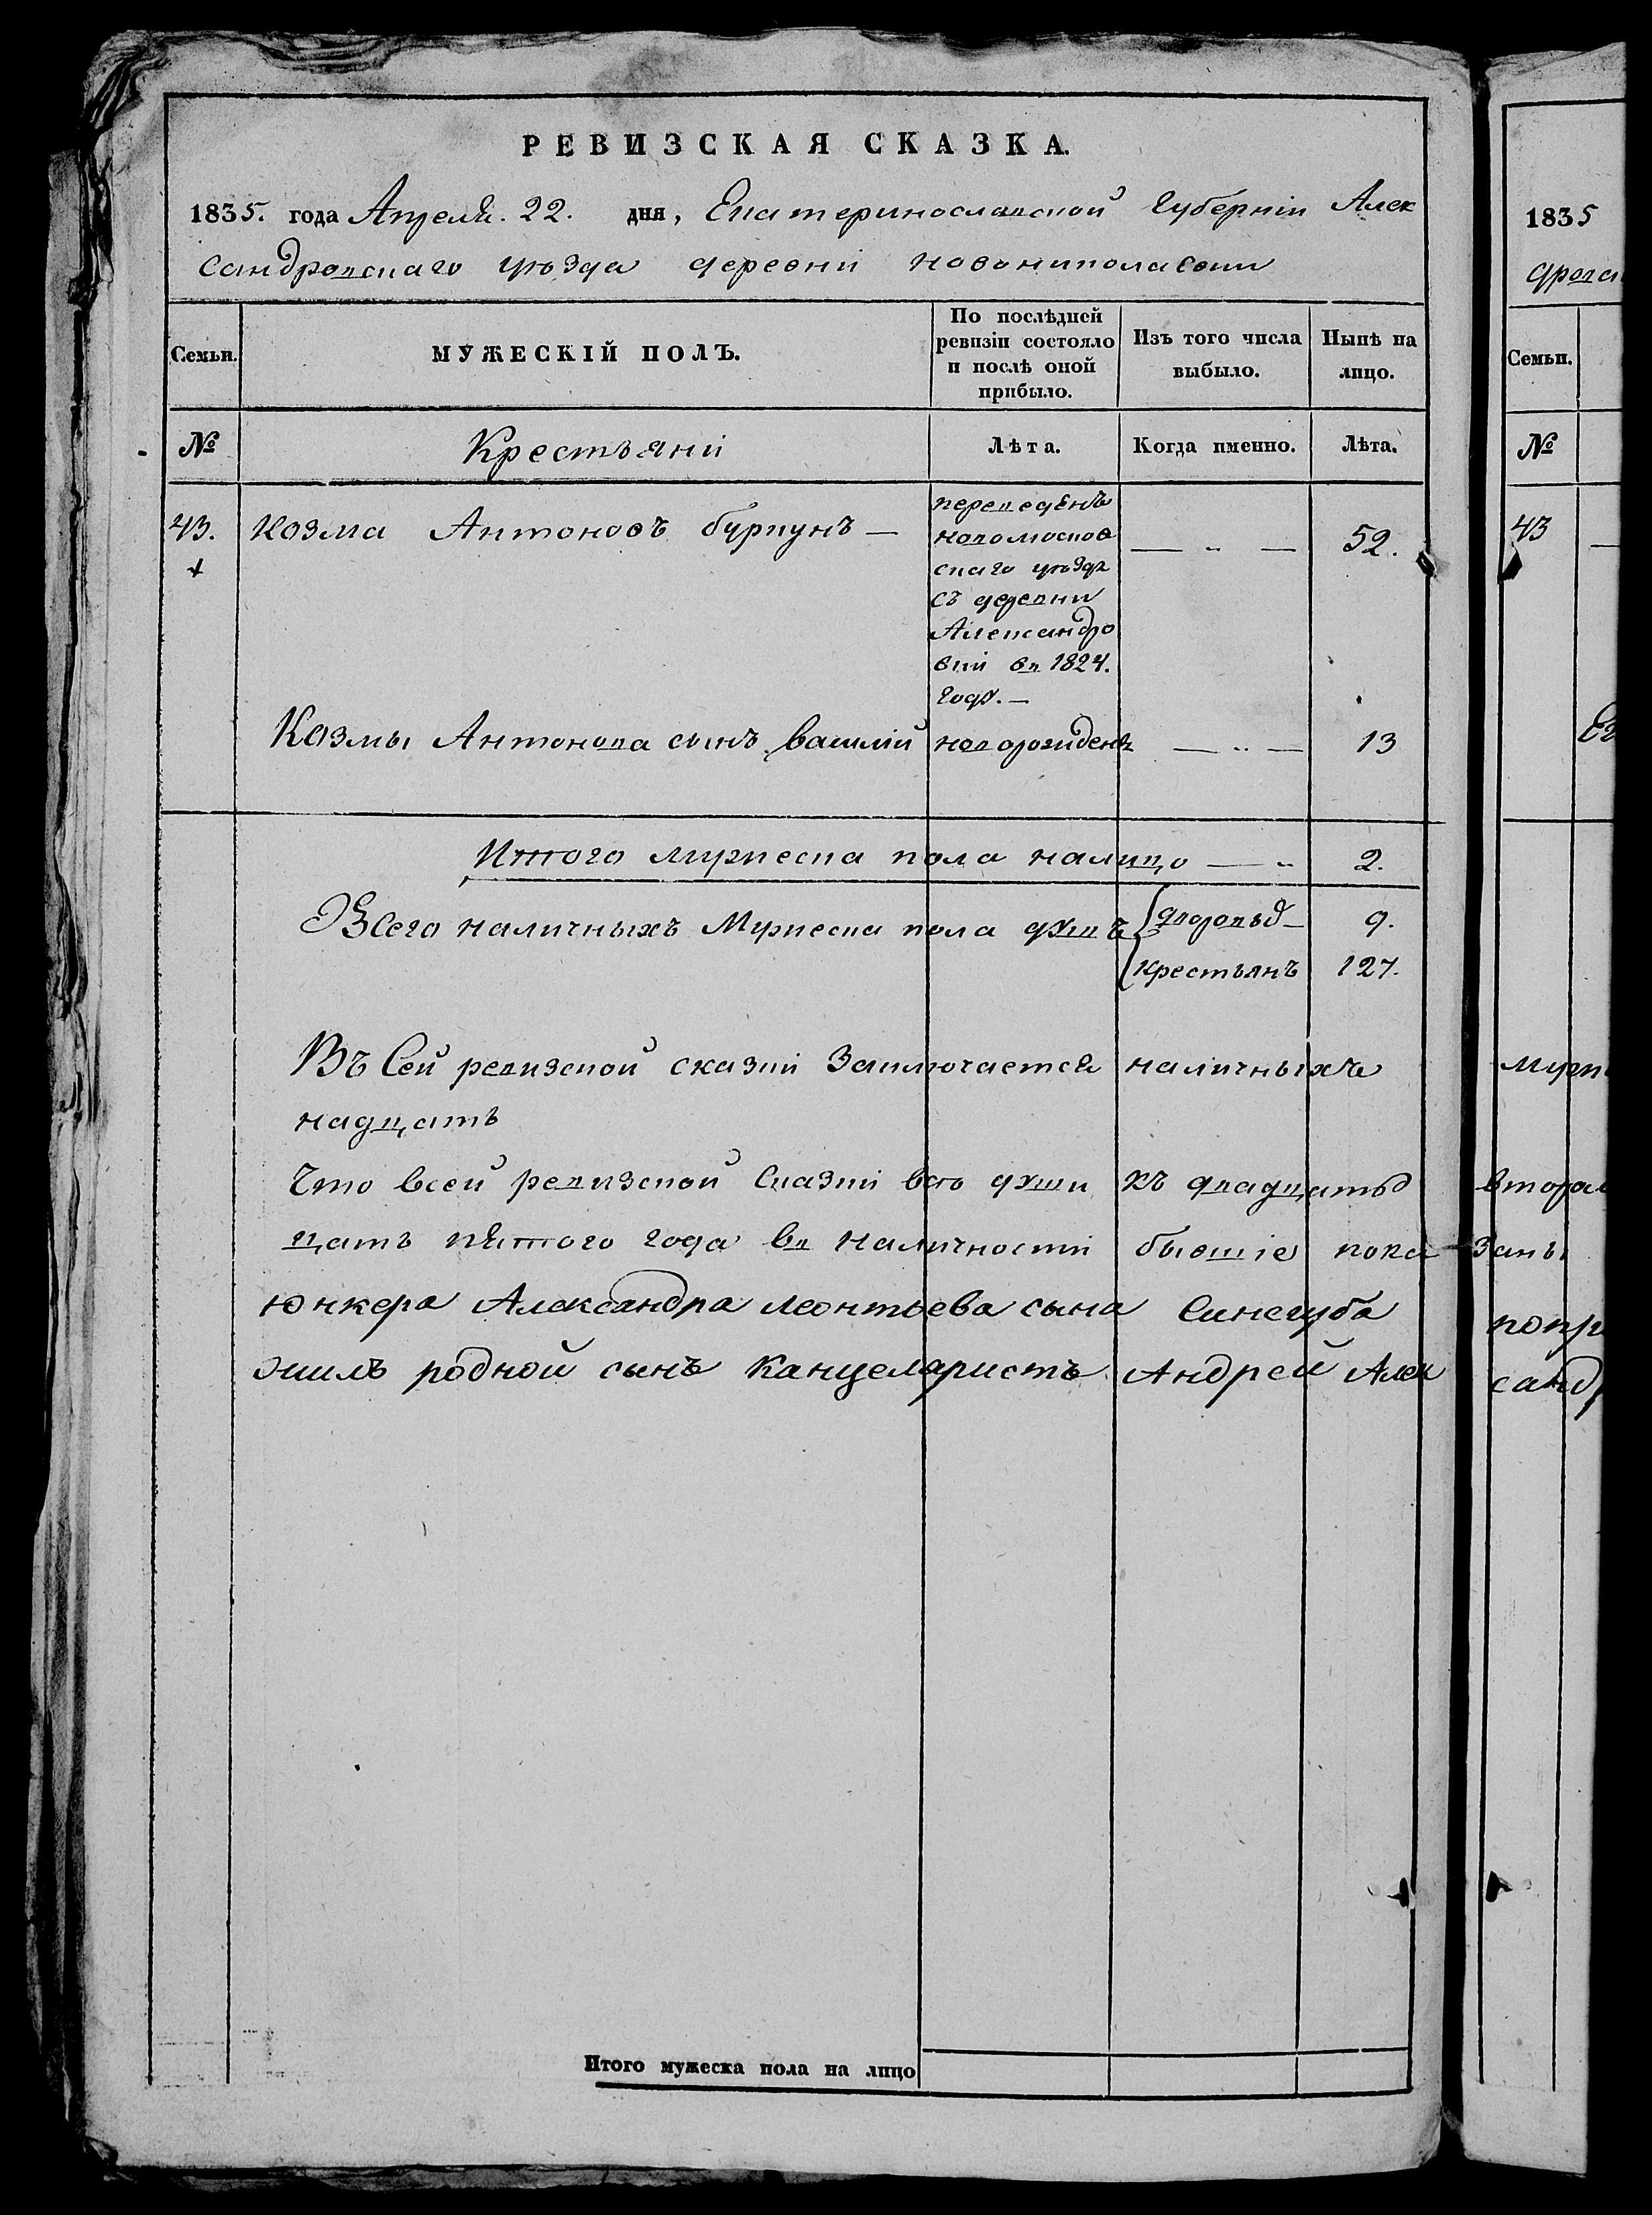 РЕВИЗСКАЯ СКАЗКА.
1835. года Апреля. 22. дня, Екатеринославской Губерніи Алек
сандровскаго уѣзда деревни Новониколаевки
Семьи.
МУЖЕСКІЙ ПОЛЪ.
По послѣдней
ревизіи состояло
и послѣ оной
прибыло.
Изъ того числа
выбыло.
Нынѣ на
лицо.
№
Крестьяни
Лѣта.
Когда именно.
Лѣта.
43. Козма Антоновъ буркунъ — переведенъ — „ — 52.
скаго уѣзда
съ деревни
Александро
вки въ 1824.
году. —
Козмы Антонова сынъ василій новорожиденъ — „ — 13
Итого мужеска пола налицо — „ 2.
Всего наличныхъ Мужеска пола душъ 9.
крестьянъ 127.
Въ Сей ревизской сказки Заключается наличныхъ
надцать
Что всей ревизской Сказки все души къ двадцать
цать пятого года въ наличности бывшіе пока
юнкера Александра леонтьева сына Синегуба
жилъ родной сынъ Канцеляристъ Андрей Алек
Итого мужеска пола на лицо
1835
Семьи.
№
43
втора
заны
попр
санд